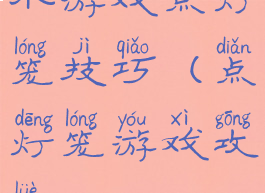 来游戏点灯
lóng jì qiǎo diǎn
笼技巧(点
dēng lóng yóu xì gōng
灯笼游戏攻
lüè